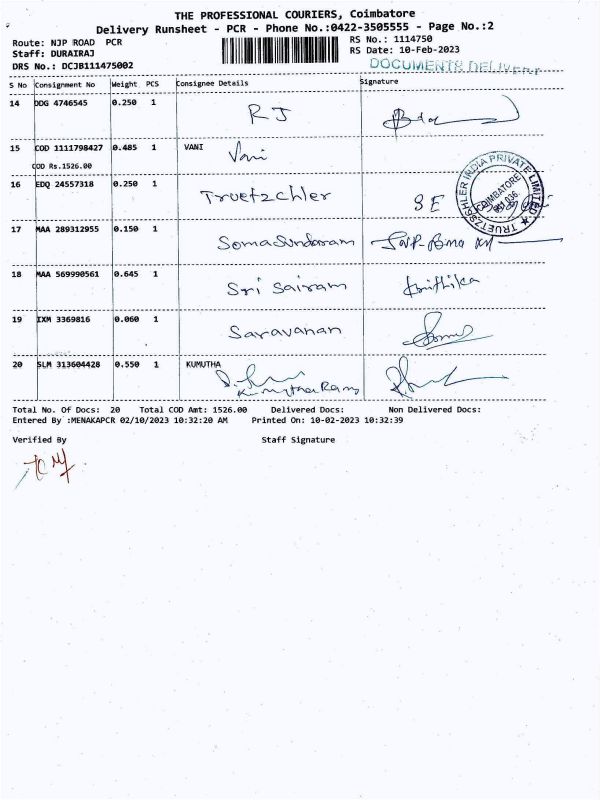 THE PROFESSIONAL COURIERS, Coimbatore
Delivery Runsheet - PCR - Phone No.:0422-3505555 - Page No.:2
Route: NJP ROAD PCR
RS No.: 1114750
Staff: DURAIRAJ
RS Date: 10-Feb-2023
DRS No.: DCJB111475002
DOCUMENTS DELIVERY
S No Consignment No Weight PCS Consignee Details Signature
14 DDG 4746545 0.250 1 RJ
15 COD 1111798427 0.485 1 VANI
Vani
COD Rs.1526.00
16 EDQ 24557318 0.250 1 Truetzchler SE
TRUETZSCHLER INDIA PRIVATE LIMITED
COIMBATORE
17 MAA 289312955 0.150 1 Somasundaram
18 MAA 569990561 0.645 1 Sri Sairam
19 IXM 3369816 0.060 1 Saravanan
20 SLM 313604428 0.550 1 KUMUTHA
Total No. Of Docs: 20 Total COD Amt: 1526.00 Delivered Docs: Non Delivered Docs:
Entered By :MENAKAPCR 02/10/2023 10:32:20 AM Printed On: 10-02-2023 10:32:39
Verified By Staff Signature